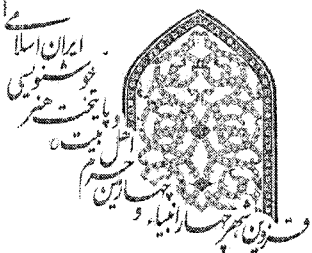 قزوین شهر چهار انبیاء و
چهارمین حرم
اهل بیت
پایتخت هنر
خوشنویسی
ایران اسلامی